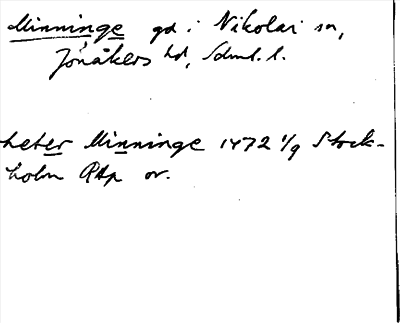 Minninge gd i Nikolai sn,
Jönåkers hd, Södml. l.
heter Minninge 1472 1/9 Stock-
holm RAp or.